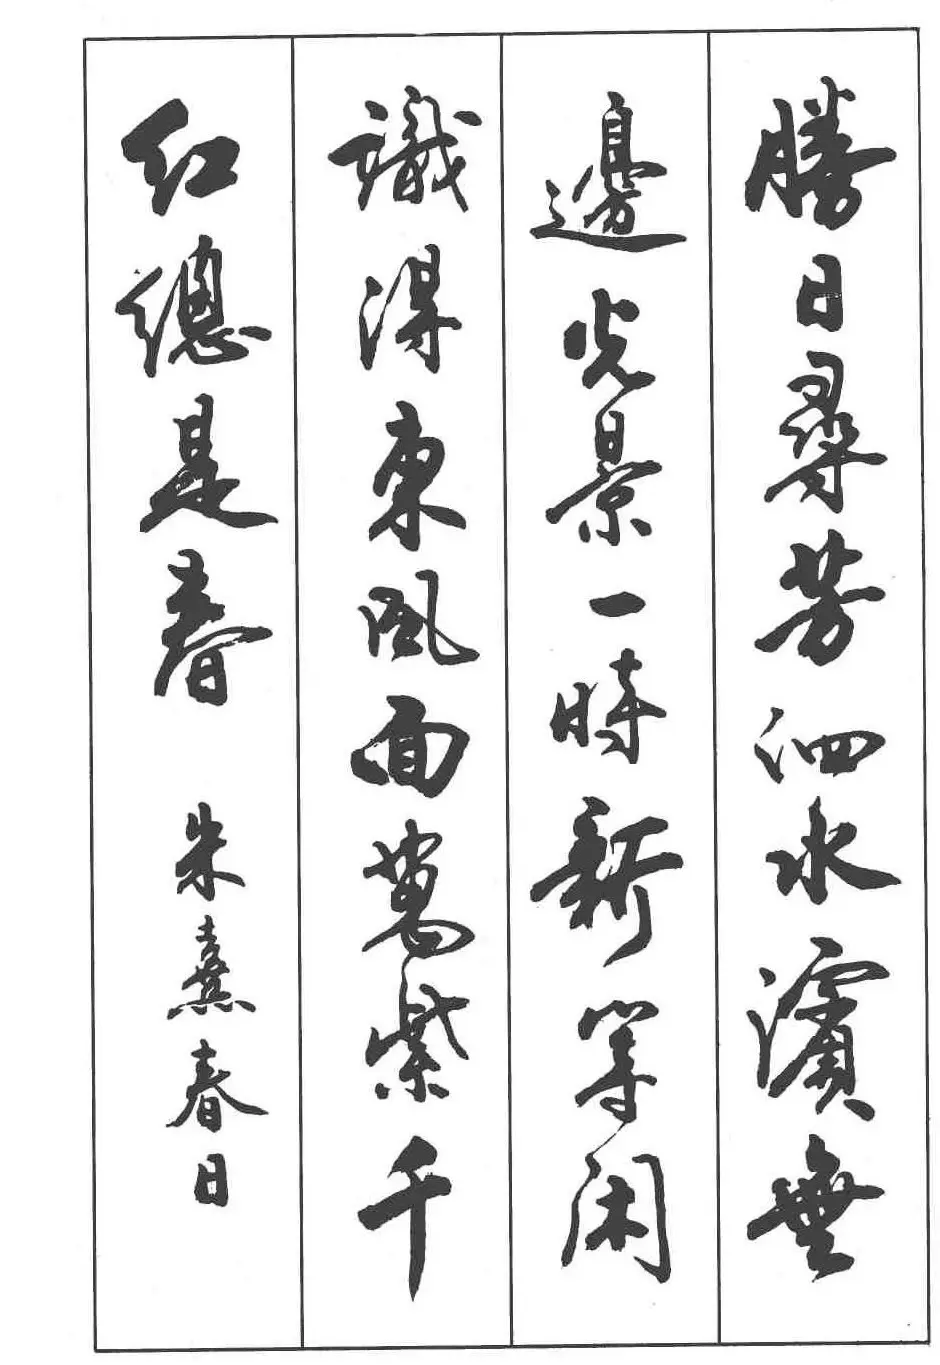 勝日尋芳泗水濱無
邊光景一時新等闲
識得東風面萬紫千
红總是春 朱熹春日